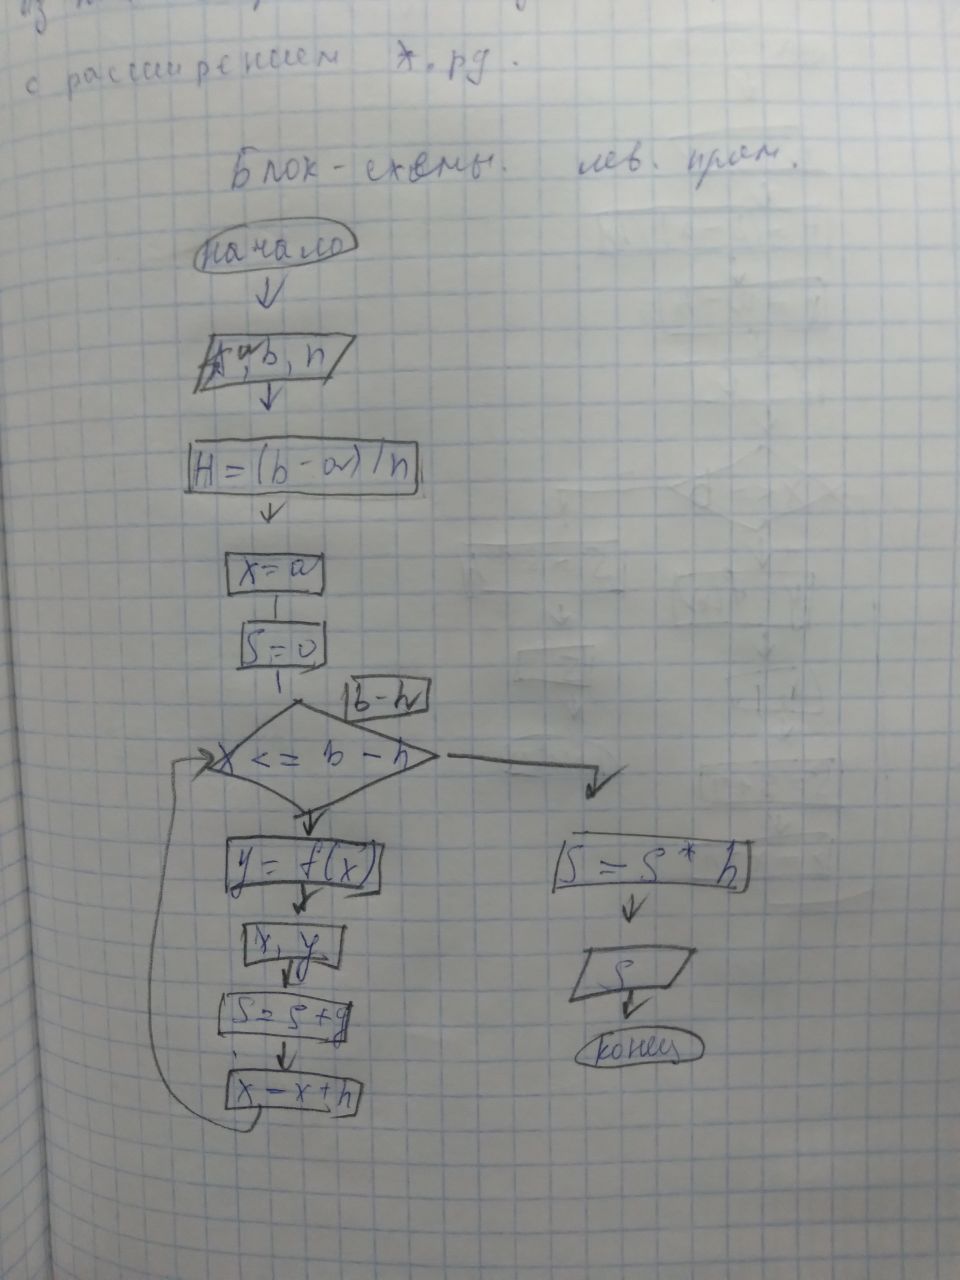 с расширением *.py.
Блок-схемы. лев. прям.
начало
a, b, n
H = (b - a) / n
x = a
S = 0
b - h
x <= b - h
y = f(x)
x, y
S = S + y
x = x + h
S = S * h
S
конец